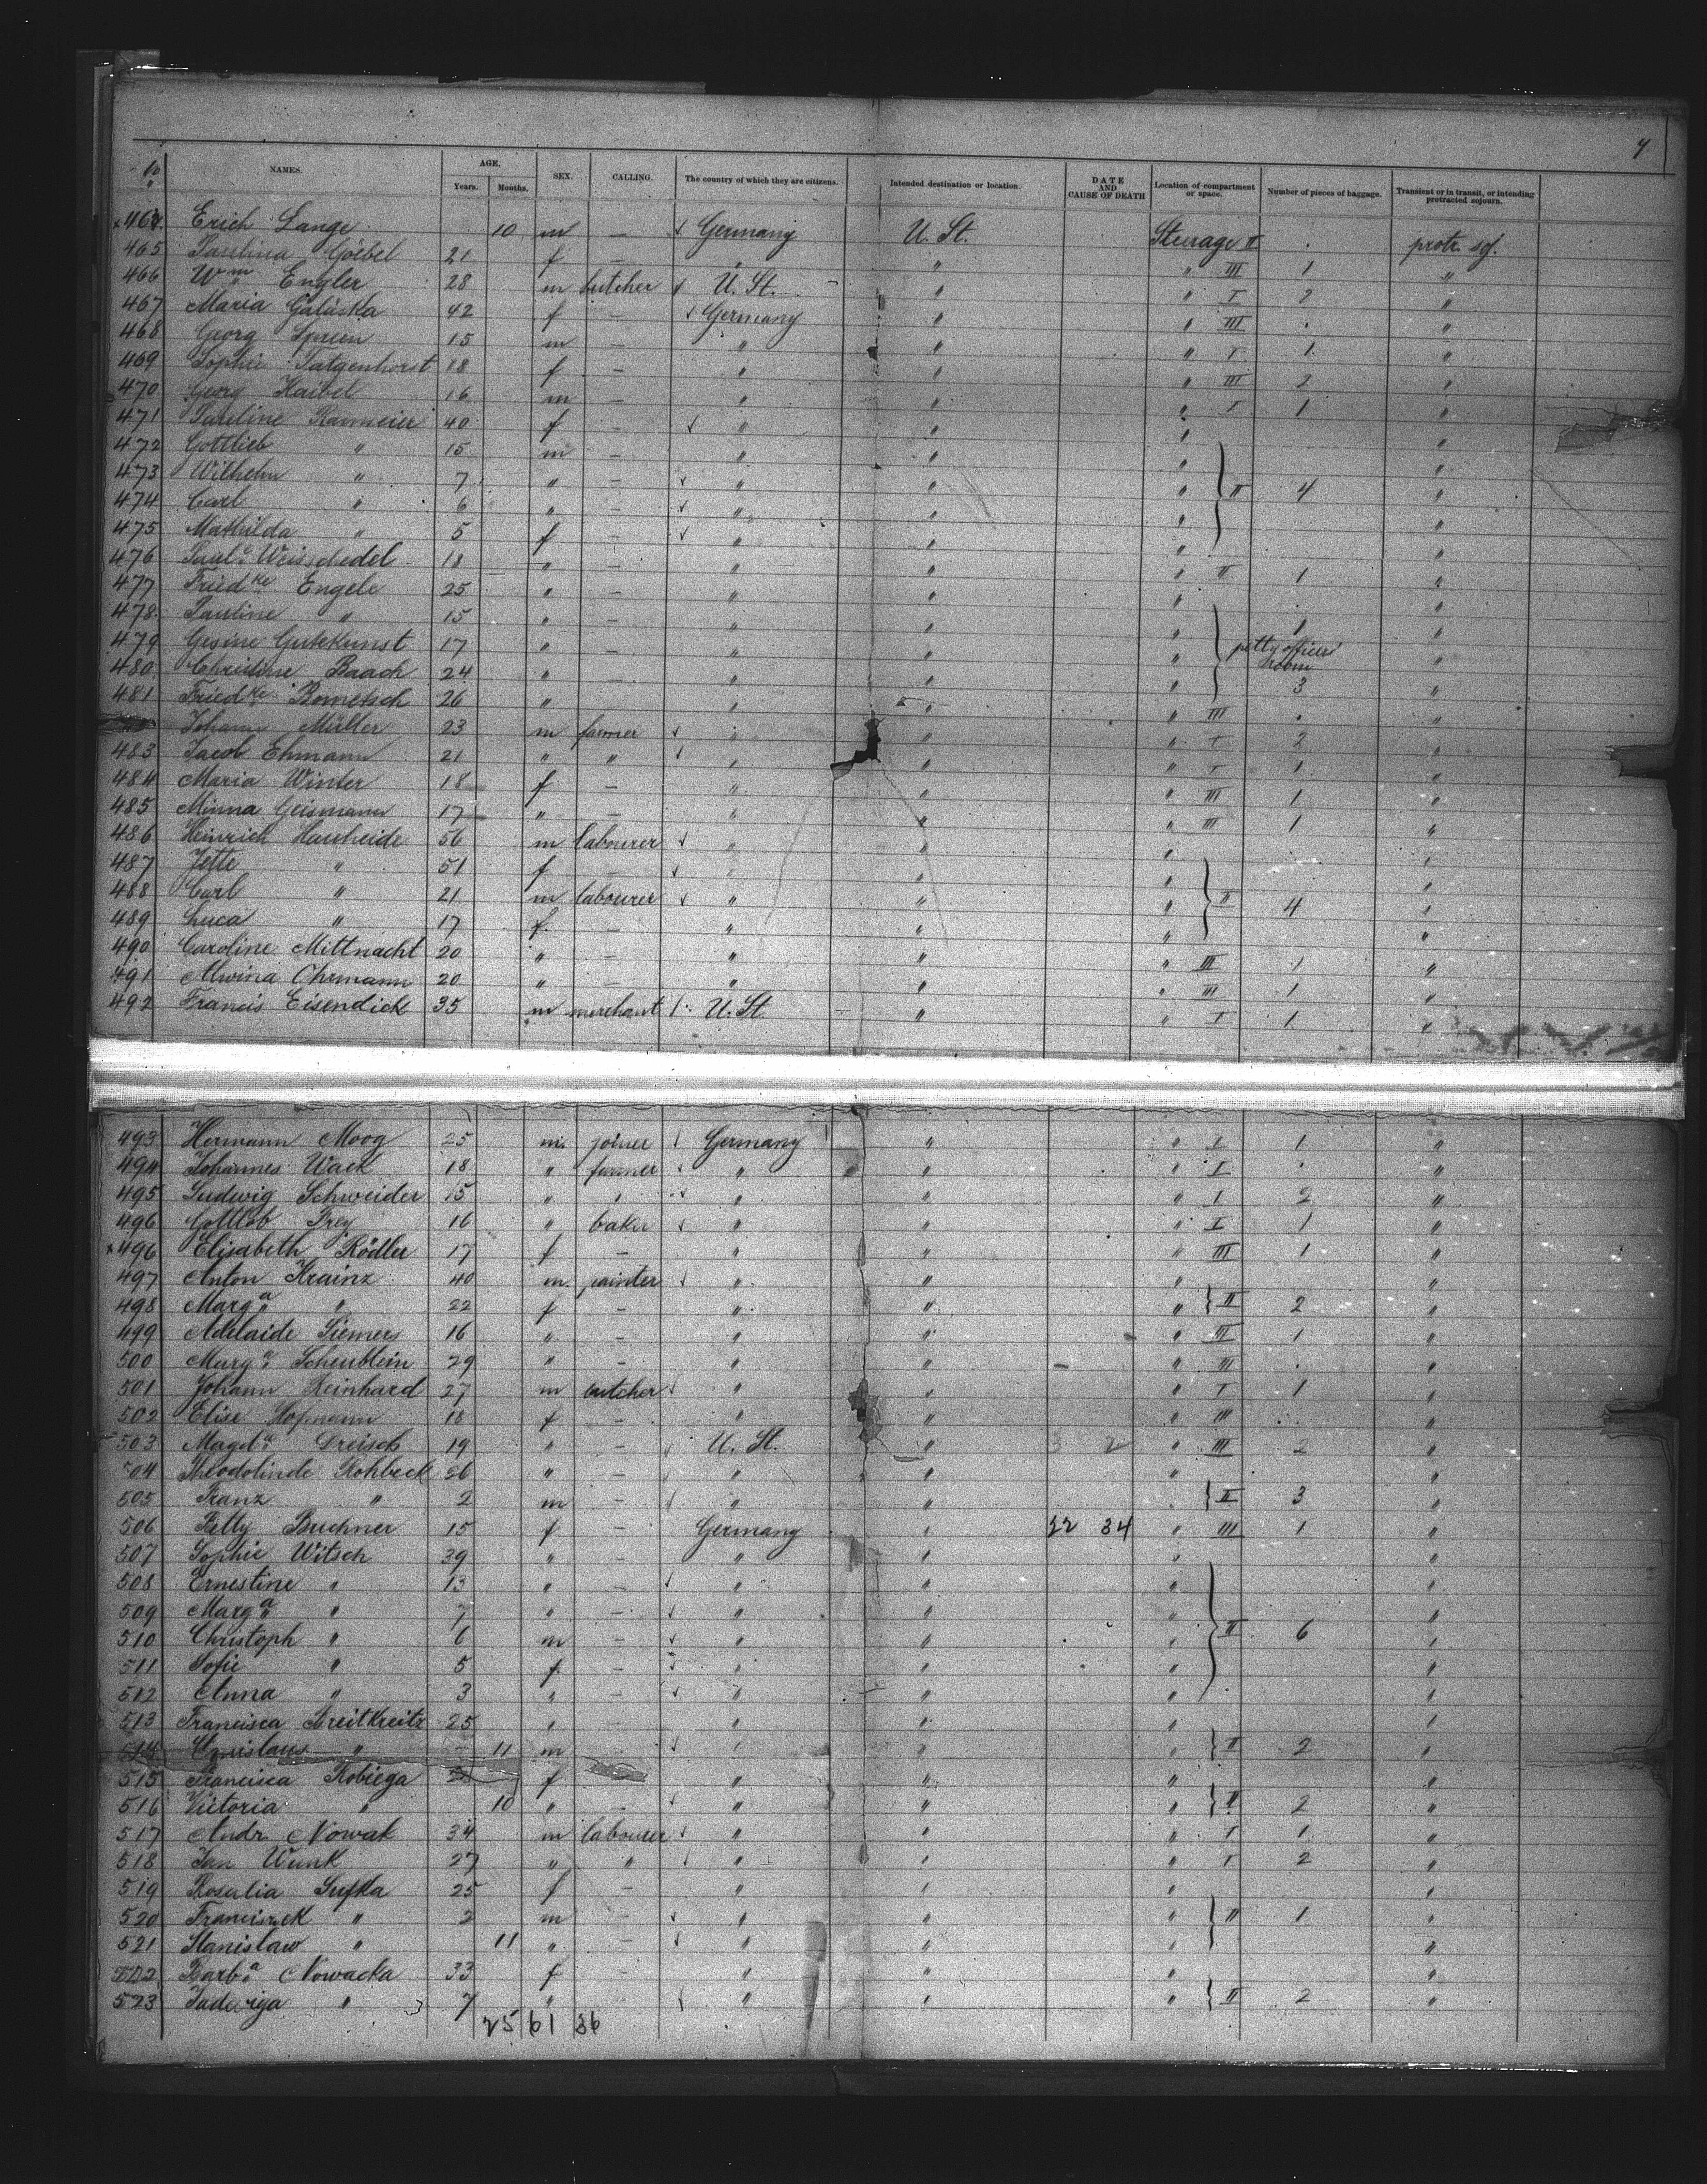 7
No NAMES. AGE. Years. Months. SEX. CALLING. The country of which they are citizens. Intended destination or location. DATE AND CAUSE OF DEATH Location of compartment or space. Number of pieces of baggage. Transient or in transit, or intending protracted sojourn.
464 Erich Lange 10 m — Germany U. St. Steerage II . protr. soj.
465 Paulina Göebel 21 f — " " " III 1 "
466 Wm Engler 28 m butcher U. St. " " I 2 "
467 Maria Galuska 42 f — Germany " " III . "
468 Georg Spreen 15 m — " " " I 1 "
469 Sophie Tatgenhorst 18 f — " " " III 2 "
470 Georg Haibel 16 m — " " " I 1 "
471 Pauline Ranmeier 40 f — " " " "
472 Gottlieb " 15 m — " " " "
473 Wilhelm " 7 " — " " " II 4 "
474 Carl " 6 " — " " " "
475 Mathilda " 5 f — " " " "
476 Paula Weisschedel 18 " — " " " II 1 "
477 Friedke Engele 25 " — " " " "
478 Pauline " 15 " — " " " 1 "
479 Gesine Gutekunst 17 " — " " " petty officers room "
480 Christine Baach 24 " — " " " 3 "
481 Friedke Bometsch 26 " " " " III . "
Johann Müller 23 m farmer " " " I 2 "
483 Jacob Ehmann 21 " " " " " I 1 "
484 Maria Winter 18 f — " " " III 1 "
485 Minna Geismann 17 " — " " " III 1 "
486 Heinrich Hauheide 56 m labourer " " " "
487 Jette " 51 f — " " " "
488 Carl " 21 m labourer " " " II 4 "
489 Luca " 17 f — " " " "
490 Caroline Mittnacht 20 " — " " " III 1 "
491 Alwina Ohrmann 20 " — " " " III 1 "
492 Francis Eisendick 35 m merchant U. St. " " I 1 "
493 Hermann Moog 25 m. joiner Germany " " I 1 "
494 Johannes Wack 18 " farmer " " " I . "
495 Ludwig Schweider 15 " " " " " I 2 "
496 Gottlob Frey 16 " baker " " " I 1 "
496 Elisabeth Rödler 17 f — " " " III 1 "
497 Anton Krainz 40 m. painter " " " "
498 Marga " 22 f — " " " II 2 "
499 Adelaide Siemers 16 " — " " " III 1 "
500 Marga Scheublein 29 " — " " " III . "
501 Johann Reinhard 27 m butcher " " " I 1 "
502 Elise Hofmann 18 f — " " " III . "
503 Magda Dreisch 19 " — U. St. " 3 2 " III 2 "
504 Theodolinde Rohbeck 26 " — " " " "
505 Franz " 2 m — " " II 3 "
506 Betty Buchner 15 f — Germany " 22 34 " III 1 "
507 Sophie Witsch 39 " — " " " "
508 Ernestine " 13 " — " " "
509 Marga " 7 " — " " " "
510 Christoph " 6 m — " " " II 6 "
511 Sofie " 5 f — " " " "
512 Anna " 3 " — " " " "
513 Francisca Breitkreitz 25 " — " " " "
514 " 11 m — " " " II 2 "
515 Francisca Kobiega f " " " "
516 Victoria " 10 " — " " " II 2 "
517 Andr. Nowak 34 m labourer " " " I 1 "
518 Jan Wunk 27 " " " " " I 2 "
519 Rosalia Sufka 25 f — " " " "
520 Franciszek " 2 m — " " " II 1 "
521 Stanislaw " 11 " — " " " "
522 Barba Nowacka 33 f — " " " "
523 Jadwiga " 7 " — " " " II 2 "
25 61 36